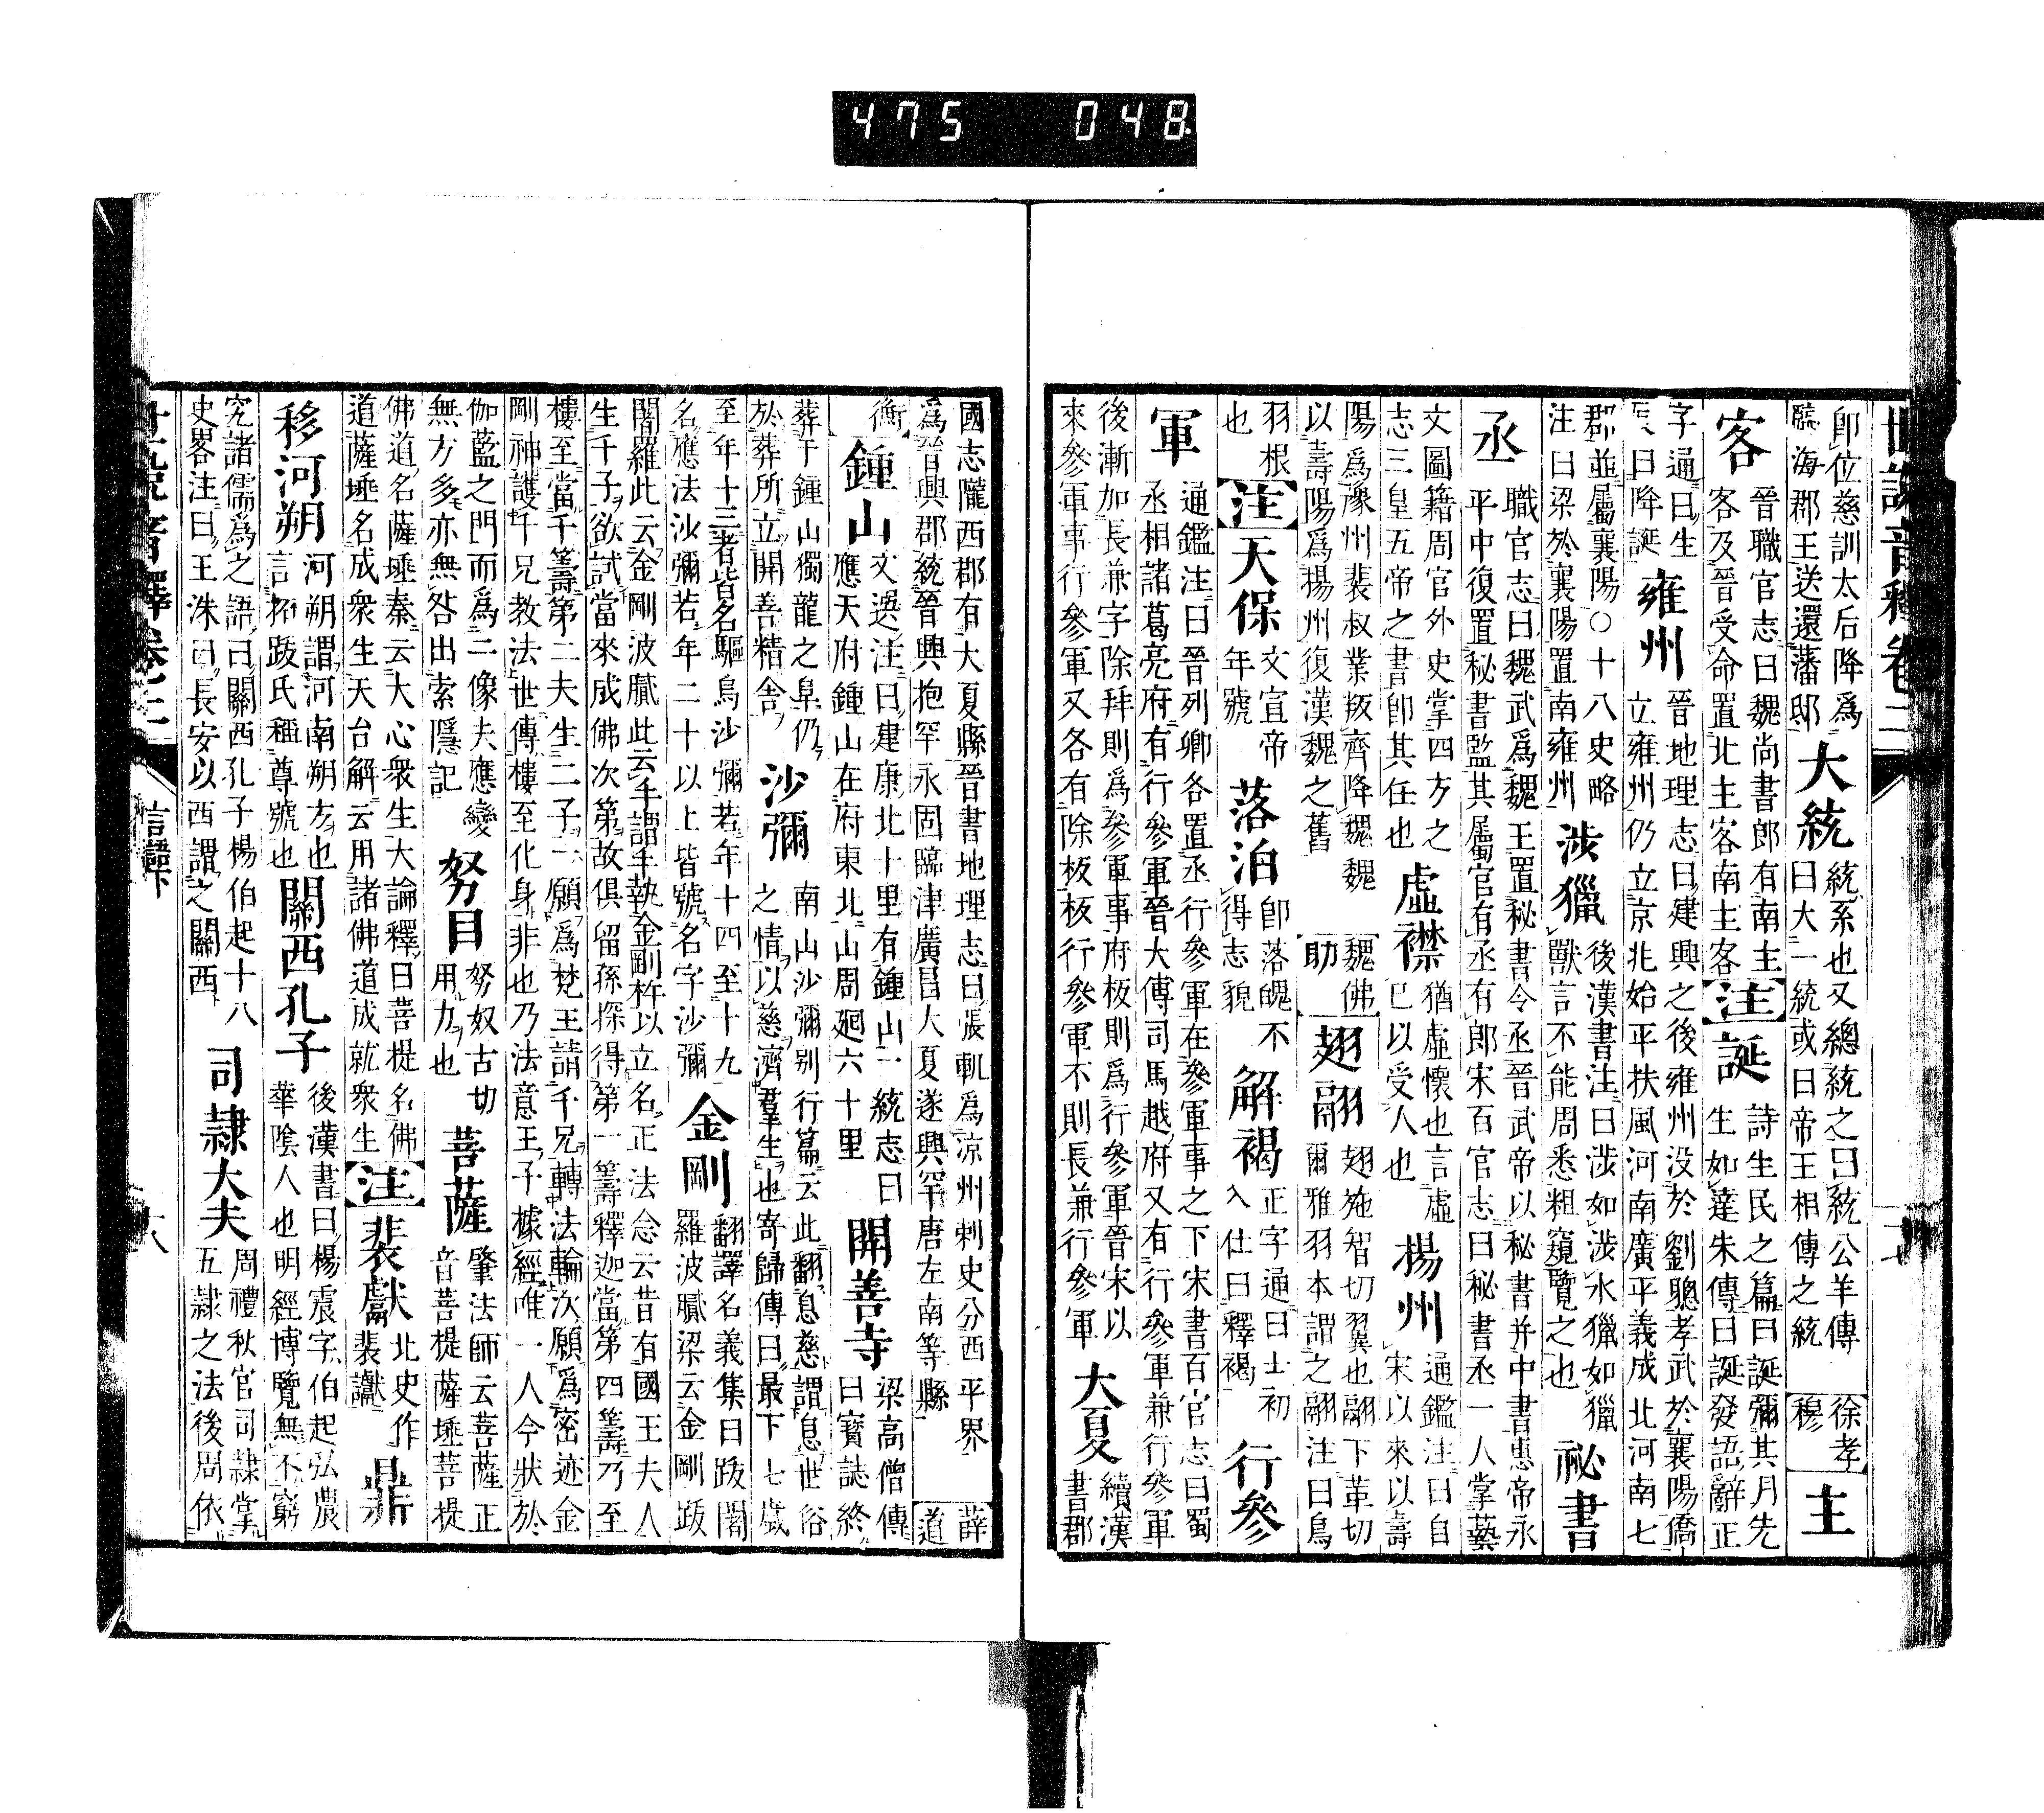 475 048
世說音釋卷二
卽位慈訓太后降爲臨海郡王送還藩邸 大統 統系也又總統之曰統公羊傳曰大一統或曰帝王相傳之統 徐孝穆 主
客 晉職官志曰魏尚書郎有南主客及晉受命置北主客南主客 注 誕 詩生民之篇曰誕彌其月先生如達朱傳曰誕發語辭正
字通曰生辰曰降誕 雍州 晉地理志曰建興之後雍州没於劉聰孝武於襄陽僑立雍州仍立京兆始平扶風河南廣平義成北河南七
郡並屬襄陽○十八史略注曰梁於襄陽置南雍州 涉獵 後漢書注曰涉如涉水獵如獵獸言不能周悉粗窺覽之也 祕書
丞 職官志曰魏武爲魏王置秘書令丞晉武帝以秘書并中書惠帝永平中復置秘書監其屬官有丞有郎宋百官志曰秘書丞一人掌藝
文圖籍周官外史掌四方之志三皇五帝之書卽其任也 虛襟 猶虛懷也言虛已以受人也 楊州 通鑑注曰自宋以來以壽
陽爲豫州裴叔業叛齊降魏魏以壽陽爲揚州復漢魏之舊 魏佛助 翅翮 翅施智切翼也翮下革切爾雅羽本謂之翮注曰鳥
羽根也 注 天保 文宣帝年號 落泊 卽落魄不得志貌 解褐 正字通曰士初入仕曰釋褐 行參
軍 通鑑注曰晉列卿各置丞行參軍在參軍事之下宋書百官志曰蜀丞相諸葛亮府有行參軍晉大傅司馬越府又有行參軍兼行參軍
後漸加長兼字除拜則爲參軍事府板則爲行參軍晉宋以來參軍事行參軍又各有除板板行參軍不則長兼行參軍 大夏 續漢書郡
國志隴西郡有大夏縣晉書地理志曰張軌爲凉州刺史分西平界爲晉興郡統晉興抱罕永固臨津廣昌大夏遂興罕唐左南等縣 薛道
衡 鍾山 文選注曰建康北十里有鍾山一統志曰應天府鍾山在府東北山周廻六十里 開善寺 梁高僧傳曰寶誌終
葬于鍾山獨龍之阜仍於葬所立開善精舍 沙彌 南山沙彌别行篇云此翻息慈謂息世俗之情以慈濟羣生也寄歸傳曰最下七歲
至年十三者皆名驅烏沙彌若年十四至十九名應法沙彌若年二十以上皆號名字沙彌 金剛 翻譯名義集曰跋闍羅波膩梁云金剛跋
闍羅此云金剛波膩此云手謂手執金剛杵以立名正法念云昔有國王夫人生千子欲試當來成佛次第故俱留孫探得第一籌釋迦當第四籌乃至
樓至當千籌第二夫人生二子一願爲梵王請千兄轉法輪次願爲密迹金剛神護千兄教法世傳樓至化身非也乃法意王子據經唯一人今狀於
伽藍之門而爲二像夫應變無方多亦無咎出索隱記 努目 努奴古切用力也 菩薩 肇法師云菩薩正音菩提薩埵菩提
佛道名薩埵秦云大心衆生大論釋曰菩提名佛道薩埵名成衆生天台解云用諸佛道成就衆生 注 裴獻 北史作裴讞 鼎
移河朔 河朔謂河南朔方也言拓跋氏稱尊號也 關西孔子 後漢書曰楊震字伯起弘農華陰人也明經博覽無不窮
究諸儒爲之語曰關西孔子楊伯起十八史畧注曰王洙曰長安以西謂之關西 司隷大夫 周禮秋官司隷掌五隷之法後周依
世說音釋卷二 言語下 十八